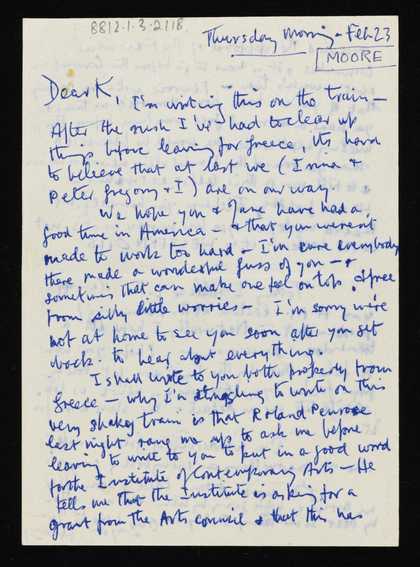 8812-1-3-2118
Thursday Morning - Feb 23
MOORE
Dear K,
I'm writing this on the train -
After the rush I've had to clear up
things before leaving for Greece, its hard
to believe that at last we (Irina &
Peter Gregory & I) are on our way.
We hope you & Jane have had a
good time in America - & that you weren't
made to work too hard - I'm sure everybody
there made a wonderful fuss of you - &
sometimes that can make one feel on top & free
from silly little worries - I'm sorry we're
not at home to see you soon after you get
back to hear about everything.
I shall write to you both properly from
Greece - why I'm struggling to write on this
very shakey train is that Roland Penrose
last night rang me up to ask me before
leaving to write to you to put in a good word
for the Institute of Contemporary Arts - He
tells me that the Institute is asking for a
grant from the Arts Council & that this has